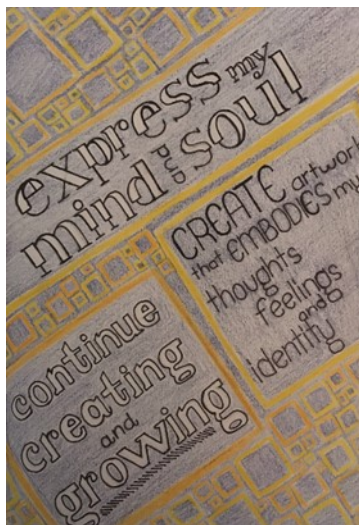 express my
mind and soul
CREATE artwork
that EMBODIES my
thoughts
feelings
and
identity
continue
creating
and
growing